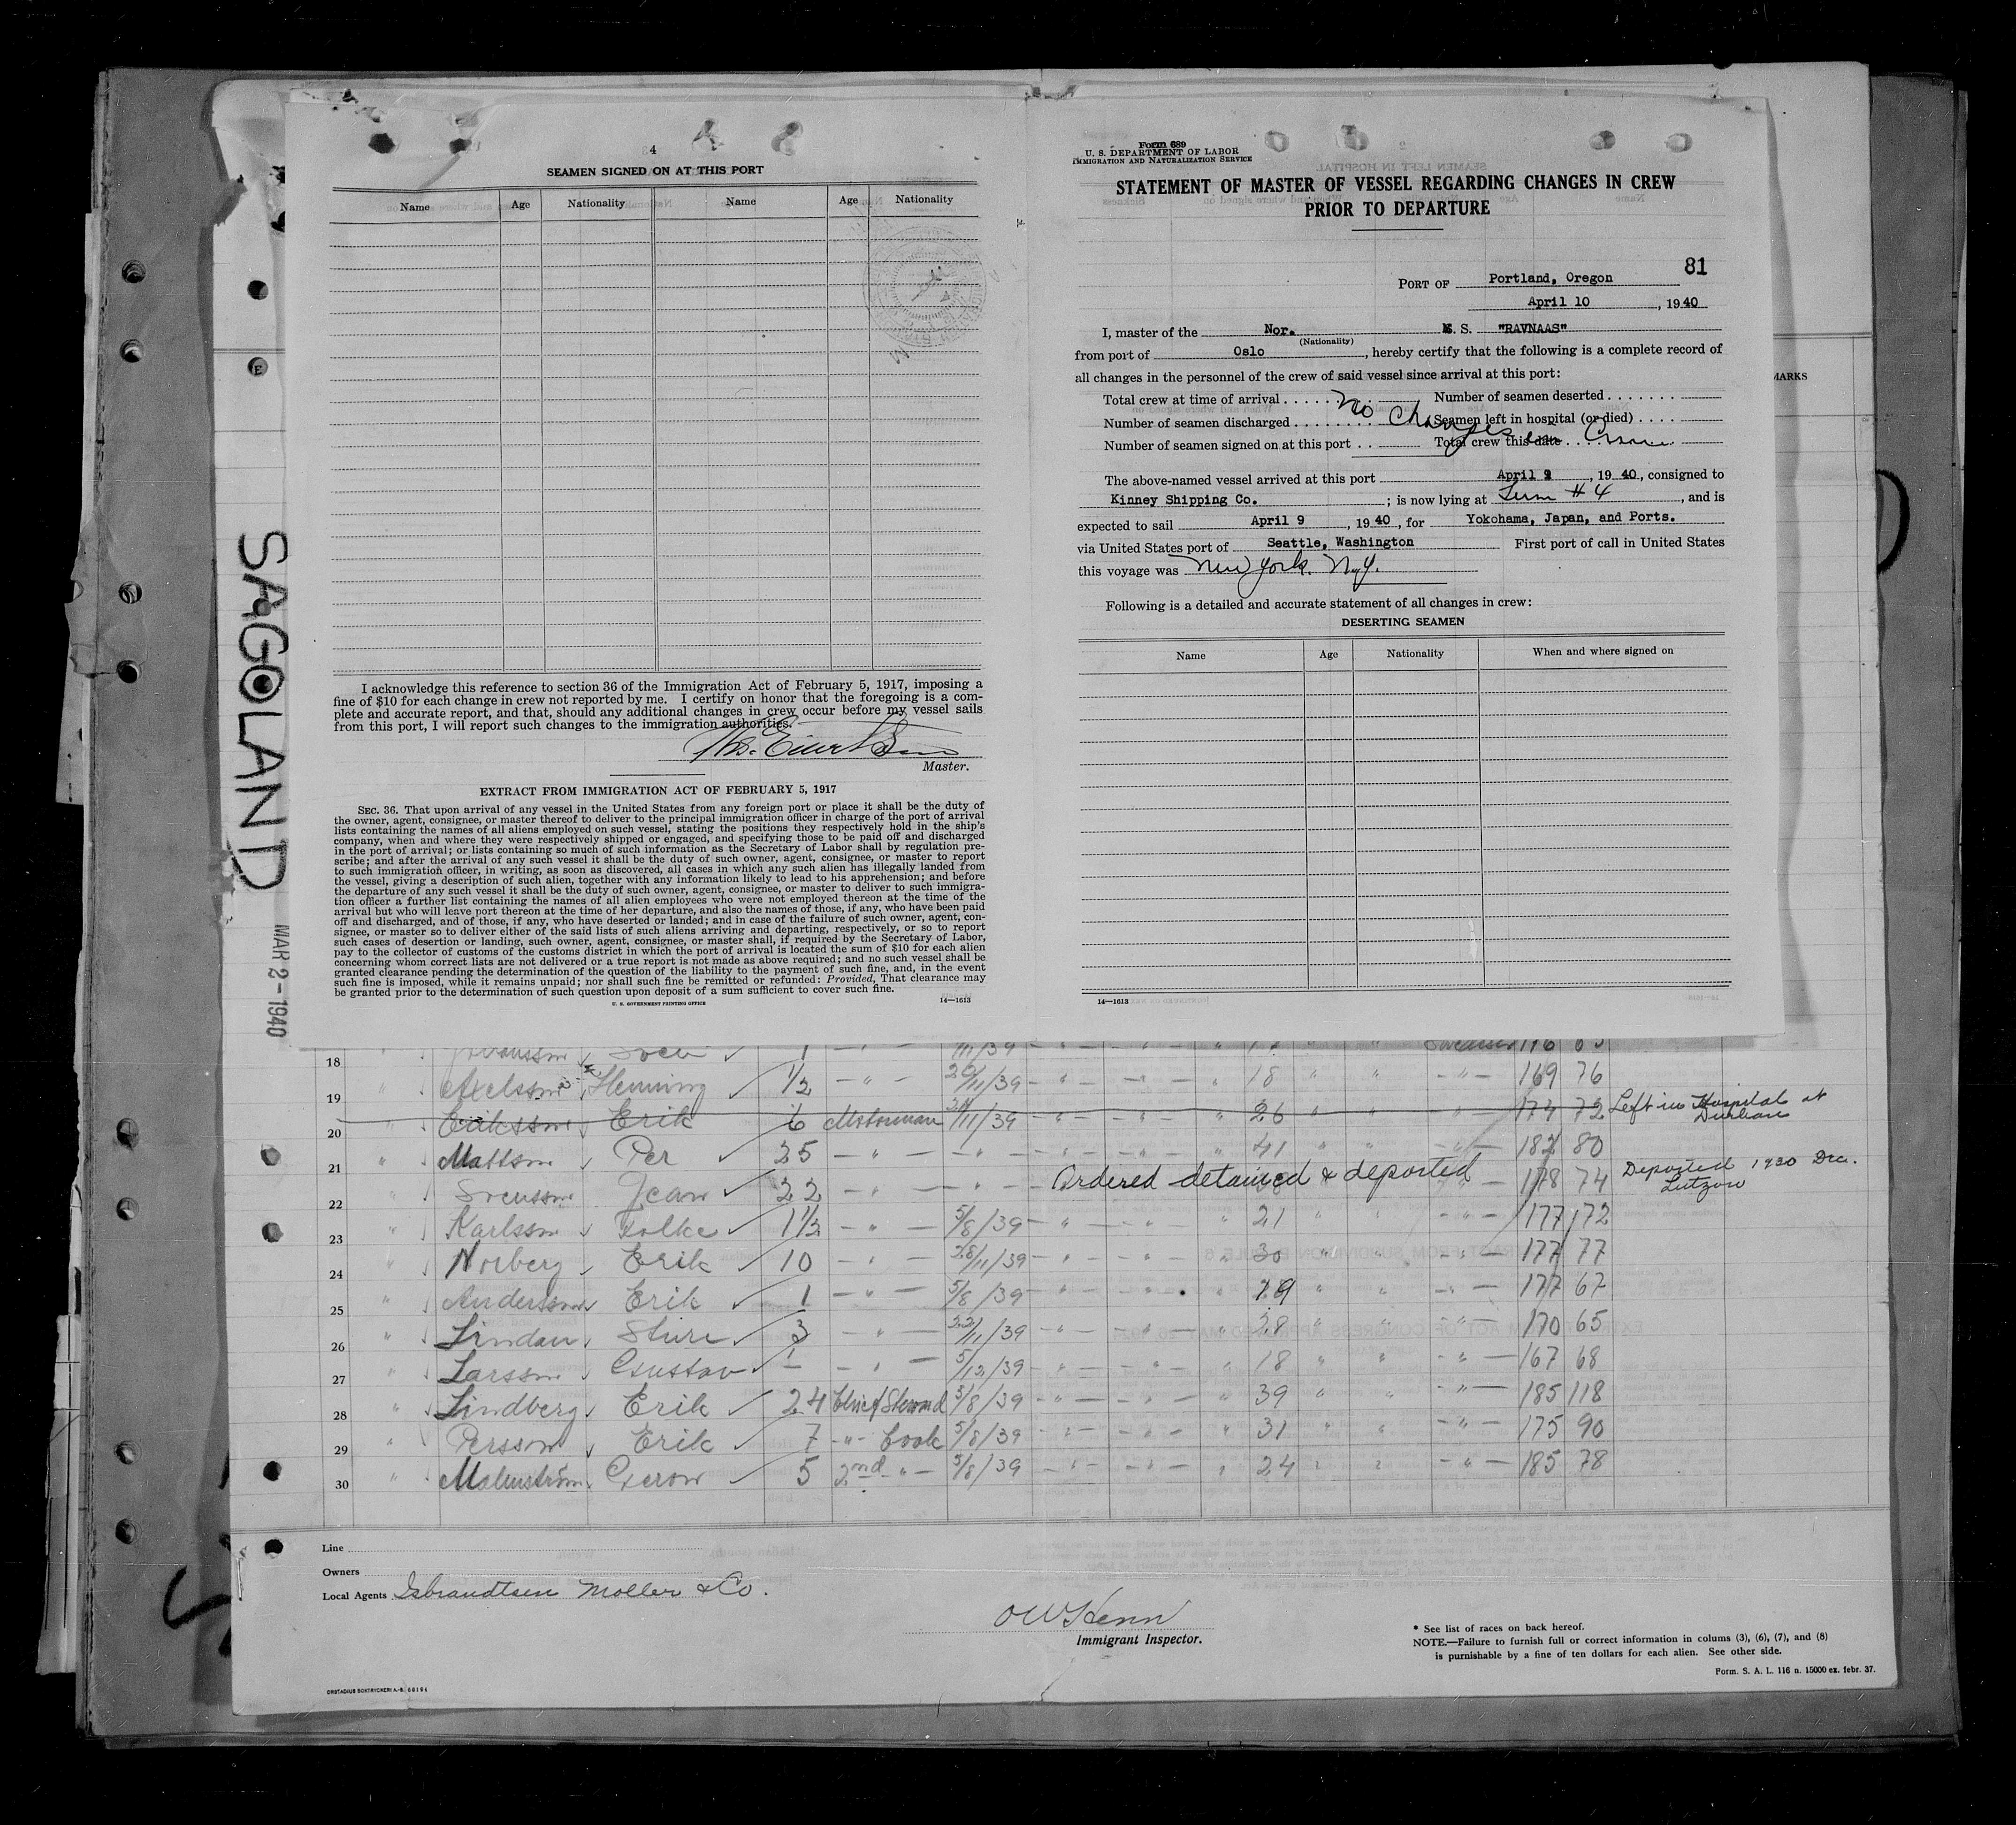 4
SEAMEN SIGNED ON AT THIS PORT
Name Age Nationality Name Age Nationality
I acknowledge this reference to section 36 of the Immigration Act of February 5, 1917, imposing a
fine of $10 for each change in crew not reported by me. I certify on honor that the foregoing is a com-
plete and accurate report, and that, should any additional changes in crew occur before my vessel sails
from this port, I will report such changes to the immigration authorities.
Master.
EXTRACT FROM IMMIGRATION ACT OF FEBRUARY 5, 1917
SEC. 36. That upon arrival of any vessel in the United States from any foreign port or place it shall be the duty of
the owner, agent, consignee, or master thereof to deliver to the principal immigration officer in charge of the port of arrival
lists containing the names of all aliens employed on such vessel, stating the positions they respectively hold in the ship's
company, when and where they were respectively shipped or engaged, and specifying those to be paid off and discharged
in the port of arrival; or lists containing so much of such information as the Secretary of Labor shall by regulation pre-
scribe; and after the arrival of any such vessel it shall be the duty of such owner, agent, consignee, or master to report
to such immigration officer, in writing, as soon as discovered, all cases in which any such alien has illegally landed from
the vessel, giving a description of such alien, together with any information likely to lead to his apprehension; and before
the departure of any such vessel it shall be the duty of such owner, agent, consignee, or master to deliver to such immigra-
tion officer a further list containing the names of all alien employees who were not employed thereon at the time of the
arrival but who will leave port thereon at the time of her departure, and also the names of those, if any, who have been paid
off and discharged, and of those, if any, who have deserted or landed; and in case of the failure of such owner, agent, con-
signee, or master so to deliver either of the said lists of such aliens arriving and departing, respectively, or so to report
such cases of desertion or landing, such owner, agent, consignee, or master shall, if required by the Secretary of Labor,
pay to the collector of customs of the customs district in which the port of arrival is located the sum of $10 for each alien
concerning whom correct lists are not delivered or a true report is not made as above required; and no such vessel shall be
granted clearance pending the determination of the question of the liability to the payment of such fine, and, in the event
such fine is imposed, while it remains unpaid; nor shall such fine be remitted or refunded: Provided, That clearance may
be granted prior to the determination of such question upon deposit of a sum sufficient to cover such fine.
U. S. GOVERNMENT PRINTING OFFICE 14—1613
Form 689
U. S. DEPARTMENT OF LABOR
IMMIGRATION AND NATURALIZATION SERVICE
STATEMENT OF MASTER OF VESSEL REGARDING CHANGES IN CREW
PRIOR TO DEPARTURE
81
PORT OF Portland, Oregon
April 10, 1940
I, master of the Nor. S. "RAVNAAS"
(Nationality)
from port of Oslo, hereby certify that the following is a complete record of
all changes in the personnel of the crew of said vessel since arrival at this port:
Total crew at time of arrival Number of seamen deserted
No Changes in Crew
Number of seamen discharged Seamen left in hospital (or died)
Number of seamen signed on at this port Total crew this date
The above-named vessel arrived at this port April 9, 1940, consigned to
Kinney Shipping Co.; is now lying at Term #4, and is
expected to sail April 9, 1940, for Yokohama, Japan, and Ports.
via United States port of Seattle, Washington First port of call in United States
this voyage was New York. N.Y.
Following is a detailed and accurate statement of all changes in crew:
DESERTING SEAMEN
Name Age Nationality When and where signed on
14—1613
MARKS
E
SAGOLAND
MAR 2-1940
18 Johansson Sven 1
19 Axelsson Henning 1/2 - " - /11/39 18 " " 169 76
20 Eriksson Erik 6 Motorman /11/39 26 " " 174 72 Left in Hospital at Durban
21 Mattson Per 25 - " - 41 " " 182 80
22 Svensson Jean 22 - " - Ordered detained & deported 178 74 Deported 1930 Dec. Lutzow
23 Karlsson Folke 1 1/2 - " - 5/8/39 21 " " 177 172
24 Norberg Erik 10 - " - 28/11/39 30 " " 177 77
25 Andersson Erik 1 - " - 5/8/39 29 " " 177 67
26 Lindau Sture 3 - " - 22/11/39 28 " " 170 65
27 Larsson Gustav 1 - " - 5/12/39 18 " " 167 68
28 Lindberg Erik 24 Chief Steward 5/8/39 39 " " 185 118
29 Persson Erik 7 - " - Cook 5/8/39 31 " " 175 90
30 Malmström 5 2nd - " - 5/8/39 24 " " 185 78
Line
Owners
Local Agents Isbrandtsen Moller & Co.
Immigrant Inspector.
* See list of races on back hereof.
NOTE.—Failure to furnish full or correct information in colums (3), (6), (7), and (8)
is punishable by a fine of ten dollars for each alien. See other side.
Form. S. A. L. 116 n. 15000 ex. febr. 37.
ORSTADIUS BOKTRYCKERI A.-B. 60194